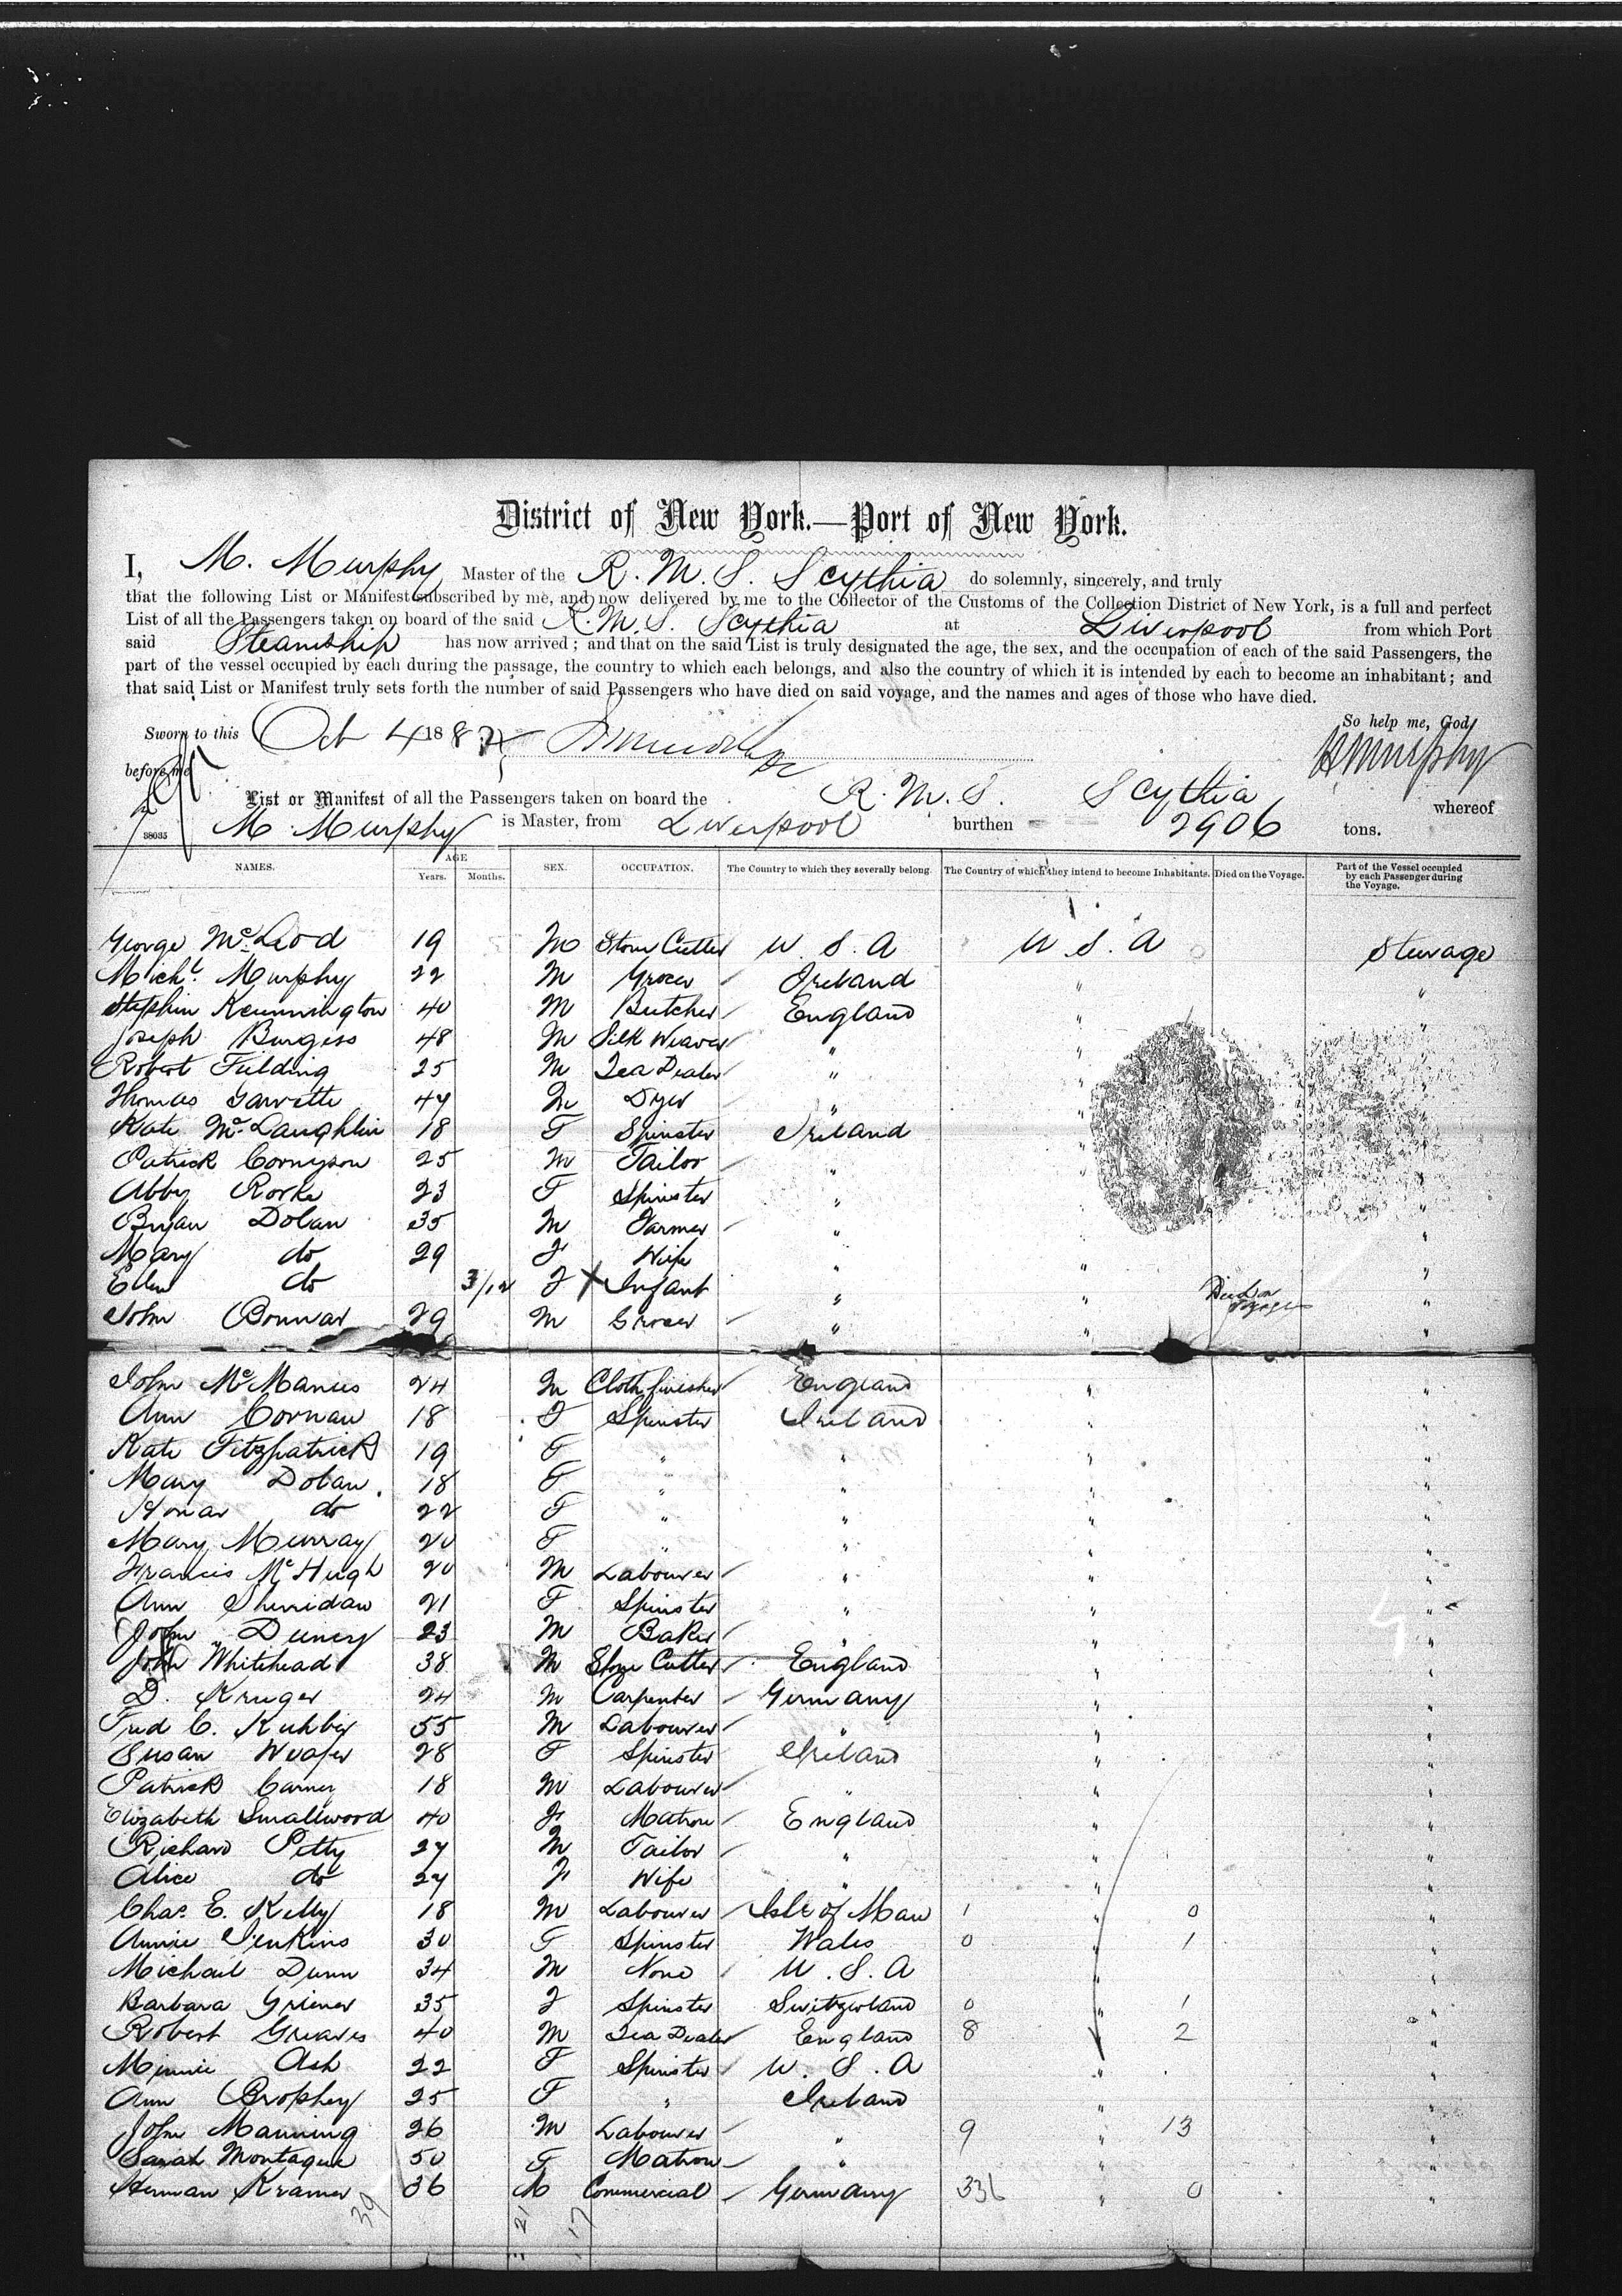 District of New York.—Port of New York.
I, M. Murphy Master of the R. M. S. Scythia do solemnly, sincerely, and truly
that the following List or Manifest subscribed by me, and now delivered by me to the Collector of the Customs of the Collection District of New York, is a full and perfect
List of all the Passengers taken on board of the said R. M. S. Scythia at Liverpool from which Port
said Steamship has now arrived; and that on the said List is truly designated the age, the sex, and the occupation of each of the said Passengers, the
part of the vessel occupied by each during the passage, the country to which each belongs, and also the country of which it is intended by each to become an inhabitant; and
that said List or Manifest truly sets forth the number of said Passengers who have died on said voyage, and the names and ages of those who have died.
So help me, God,
Sworn to this Oct 4 188
before me Murphy
List or Manifest of all the Passengers taken on board the R. M. S. Scythia whereof
38035 M. Murphy is Master, from Liverpool burthen 2906 tons.
NAMES. AGE Years. Months. SEX. OCCUPATION. The Country to which they severally belong. The Country of which they intend to become Inhabitants. Died on the Voyage. Part of the Vessel occupied by each Passenger during the Voyage.
George McLeod 19 M Stone Cutter U. S. A U. S. A Steerage
Michl. Murphy 22 M Grocer Ireland " "
Stephen Kennington 40 M Butcher England " "
Joseph Burgess 48 M Silk Weaver " " "
Robert Fielding 25 M Tea Dealer " " "
Thomas 47 M Dyer " " "
Kate McLaughlin 18 F Spinster Ireland " "
Patrick 25 M Tailor " " "
Abby Rorke 23 F Spinster " " "
Bryan Dolan 35 M Farmer " " "
Mary do 29 F Wife " " "
Ellen do 3/12 F X Infant " " Died on Voyage "
John 29 M Grocer " " "
John McManus 24 M Cloth finisher England " "
Ann 18 F Spinster Ireland " "
Kate Fitzpatrick 19 F " " " "
Mary Dolan 18 F " " " "
Honar do 22 F " " " "
Mary Murray 20 F " " " "
Francis McHugh 20 M Labourer " " "
Ann Sherridan 21 F Spinster " " "
John 23 M Baker " " "
John Whitehead 38 M Stone Cutter England " "
D. Kruger 24 M Carpenter Germany " "
Fred C. 55 M Labourer " " "
Susan 28 F Spinster Ireland " "
Patrick Carney 18 M Labourer " " "
Elizabeth Smallwood 40 F Matron England " "
Richard Petty 27 M Tailor " " "
Alice do 27 F Wife " " "
Chas. E. Kelly 18 M Labourer Isle of Man 1 " 0 "
Annie Jenkins 30 F Spinster Wales 0 " 1 "
Michael Dunn 34 M None U. S. A " "
Barbara Griener 35 F Spinster Switzerland 0 " 1 "
Robert Greaves 40 M Tea Dealer England 8 " 2 "
Minnie Ash 22 F Spinster U. S. A " "
Ann Brophy 25 F " Ireland " "
John Manning 26 M Labourer " 9 " 13 "
Sarah Montague 50 F Matron " " "
Herman Kramer 36 M Commercial Germany 336 " 0 "
39 21 17